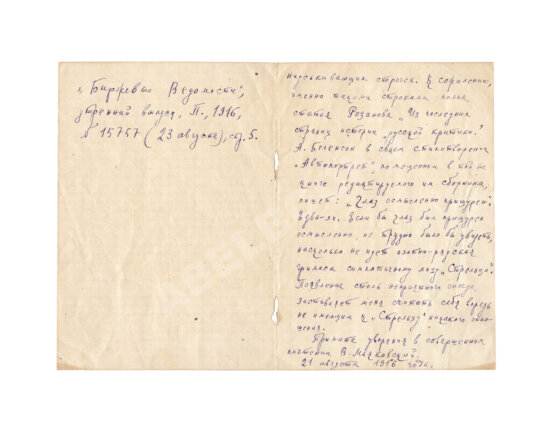 „Биржевые Ведомости",
утренний выпуск, П., 1916,
№ 15757 (23 августа), стр. 5.
науськивающих строчек. К сожалению,
именно такими строками полна
статья Розанова „Из последних
страниц истории русской критики."
А. Беленсон в своем стихотворении
„Автопортрет", помещенном в той же
книге редактируемого им сборника,
пишет: „Глаз осмысленно прищурен".
Едва-ли. Если бы глаз был прищурен
осмысленно, не трудно было бы увидеть,
насколько не идет охотно-рядская
гримаса симпатичному лицу „Стрельца".
Появление столь неприятного соседа
заставляет меня считать себя впредь
не имеющим к „Стрельцу" никакого отно-
шения.
Примите уверения в совершенном
почтении В. Маяковский.
21 августа 1916 года.